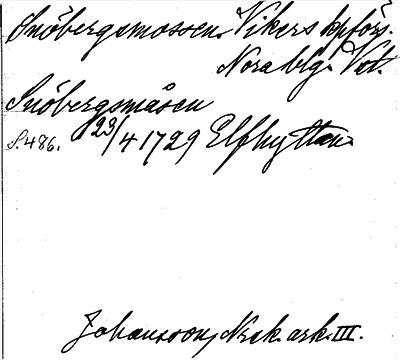 Snöbergsmossen Vikers kpförs.
Nora blg. Vstl.
Snöbergsmåsen
S. 486. 23/4 1729 Elfhyttan
Johansson, Nrsk. ark. III.